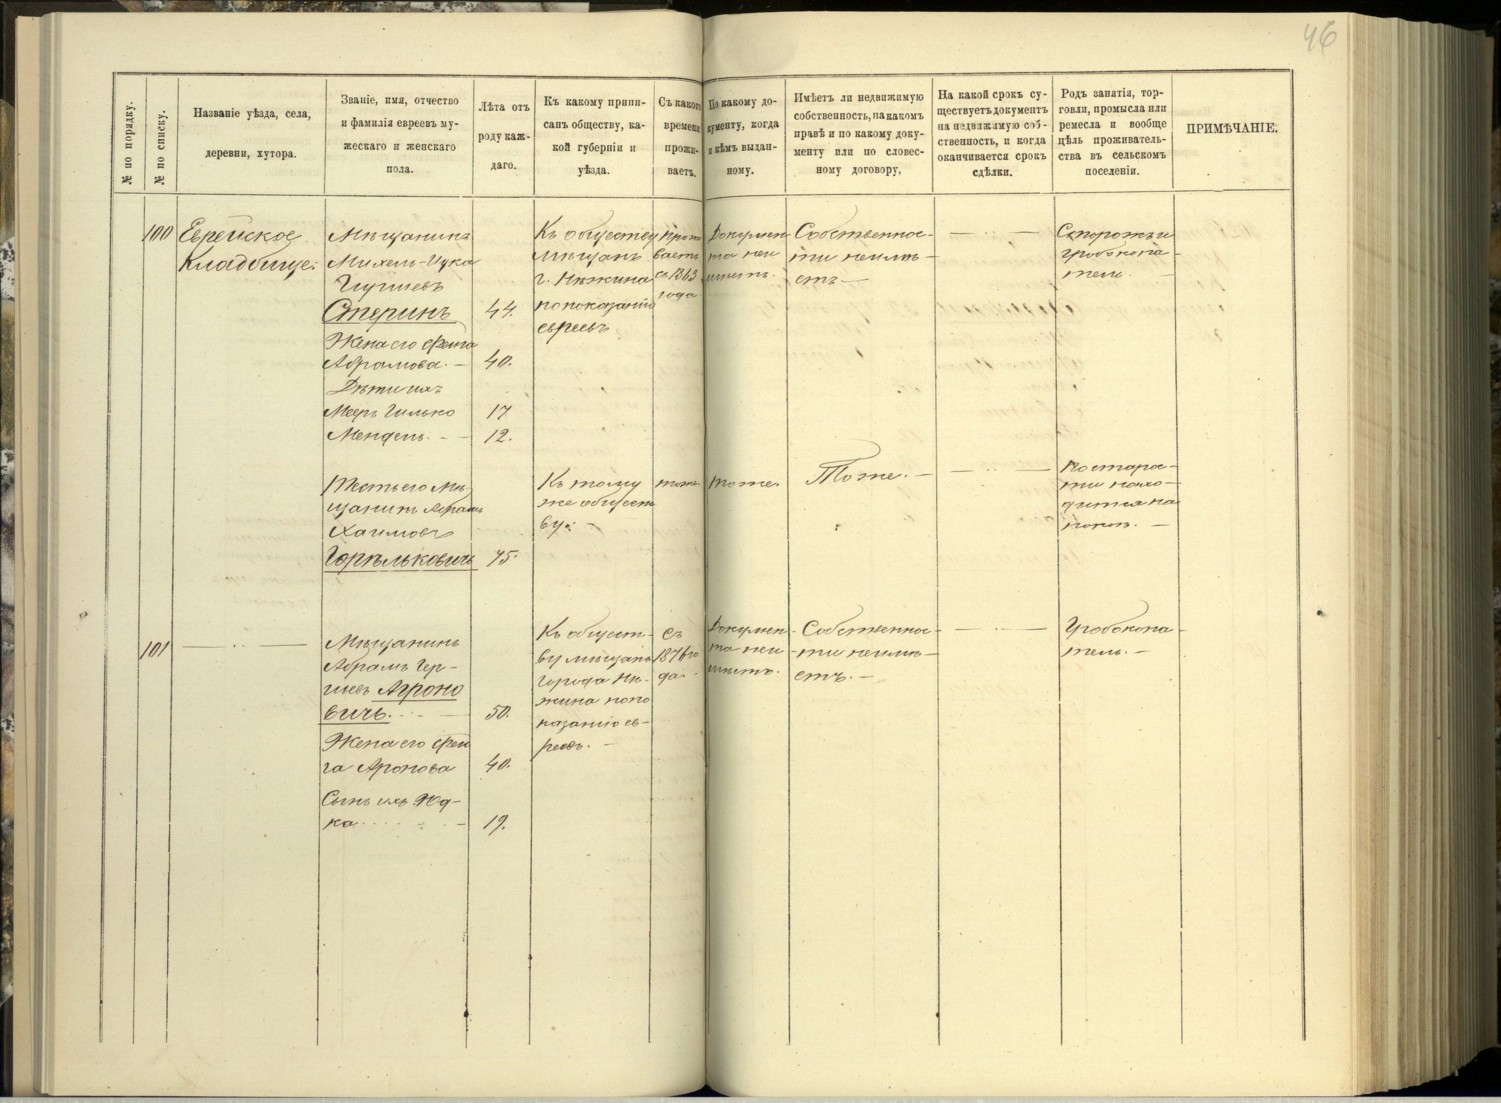 46
№ по порядку.
№ по списку.
Названіе уѣзда, села,
деревни, хутора.
Званіе, имя, отчество
и фамилія евреевъ му-
жескаго и женскаго
пола.
Лѣта отъ
роду каж-
даго.
Къ какому припи-
санъ обществу, ка-
кой губерніи и
уѣзда.
Съ какого
времени
прожи-
ваетъ.
По какому до-
кументу, когда
и кѣмъ выдан-
ному.
Имѣетъ ли недвижимую
собственность, на какомъ
правѣ и по какому доку-
менту или по словес-
ному договору,
На какой срокъ су-
ществуетъ документъ
на недвижимую соб-
ственность, и когда
оканчивается срокъ
сдѣлки.
Родъ занятія, тор-
говли, промысла или
ремесла и вообще
цѣль проживатель-
ства въ сельскомъ
поселеніи.
ПРИМѢЧАНІЕ.
100
Еврейское
Кладбище.
Мѣщанинъ
Михель-Ицка
Стеринъ
44.
Жена его Фейга
Абрамова. —
40.
Дѣти ихъ
17
Мендель. - —
12.
Къ обществу
мѣщанъ
г. Нѣжина
по показанію
евреевъ
Прожи
ваетъ
съ 1863
года
Докумен
та не и
мѣетъ.
Собственнос-
ти не имѣ-
етъ —
— ·· —
Сторожъ и
гробокопа
тель. —
Тесть его Мѣ
щанинъ Абрамъ
Хаимовъ
Горѣльковичъ
75.
Къ тому
же общест
ву. —
тоже
тоже.
Тоже. —
— ·· —
По старос-
ти нахо-
дится на
покоѣ. —
101
— ·· —
Мѣщанинъ
Абрамъ Гер-
шевъ Агроно
вичъ. · · —
50.
Жена его Фей
га Аронова
40.
Сынъ ихъ Юд-
ка · · · · - —
19.
Къ общест-
ву мѣщанъ
города Нѣ-
жина по по
казанію ев-
реевъ. —
Съ
1876 го
да. -
Докумен
та не и
мѣетъ.
Собственнос-
ти не имѣ-
етъ. —
— ·· —
Гробокопа-
тель. —